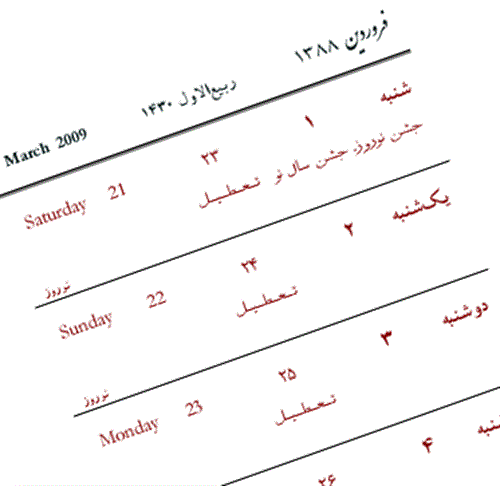 فروردین ۱۳۸۸ ربیع‌الاول ۱۴۳۰ March 2009
شنبه ۱ ۲۳ 21 Saturday
جشن نوروز، جشن سال نو تعطیل
نوروز
یک‌شنبه ۲ ۲۴ 22 Sunday
تعطیل
نوروز
دوشنبه ۳ ۲۵ 23 Monday
تعطیل
۴ ۲۶